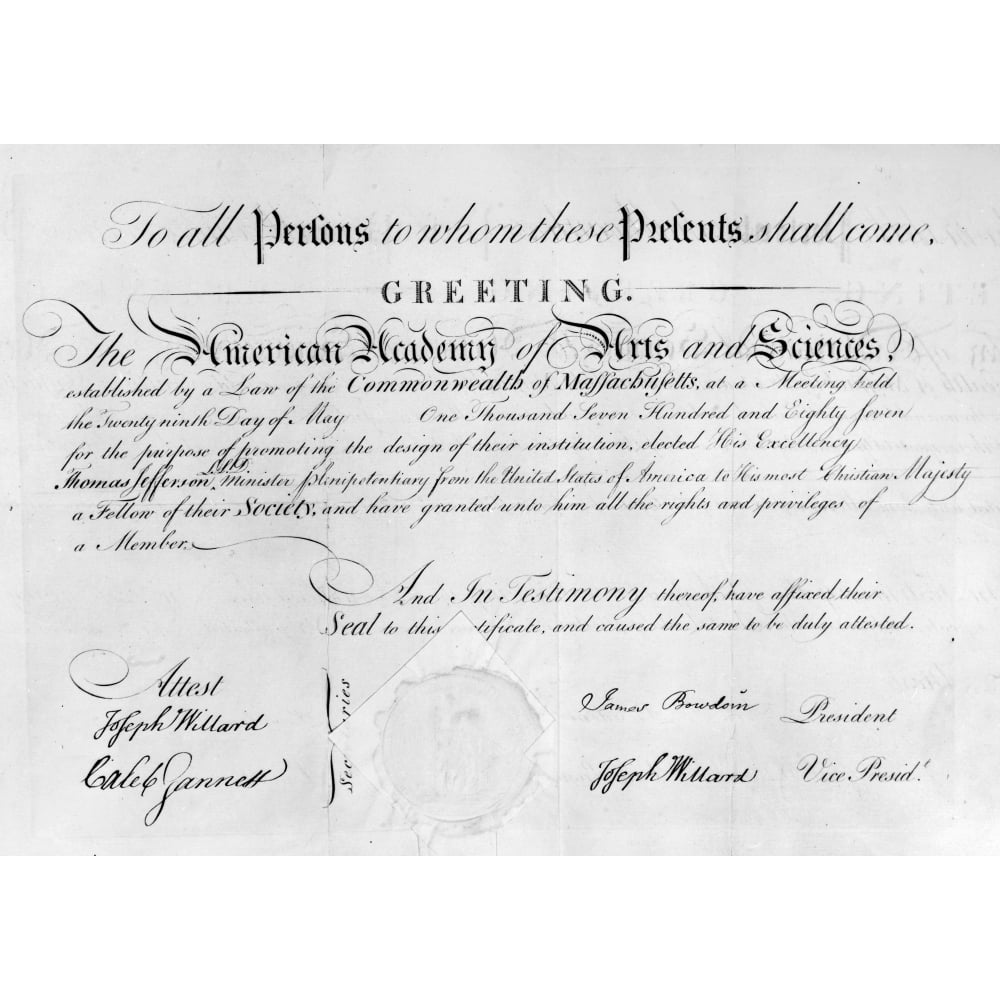 To all Persons to whom these Presents shall come,
GREETING.
The American Academy of Arts and Sciences,
established by a Law of the Commonwealth of Massachusetts, at a Meeting held
the Twenty ninth Day of May One Thousand Seven Hundred and Eighty Seven
for the purpose of promoting the design of their institution, elected His Excellency
Thomas Jefferson LLD. Minister plenipotentiary from the United States of America to His most Christian Majesty
a Fellow of their Society, and have granted unto him all the rights and privileges of
a Member.
And In Testimony thereof, have affixed their
Seal to this tificate, and caused the same to be duly attested.
Attest
Joseph Willard
Caleb Gannett
Sec ries
James Bowdoin President
Joseph Willard Vice Presidt.